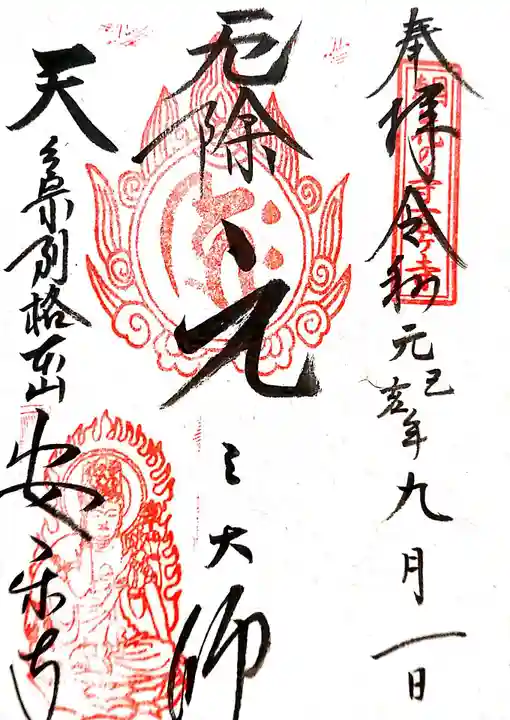 奉拝 令和元己亥年九月一日
厄除 元三大師
天台宗別格本山 安楽寺